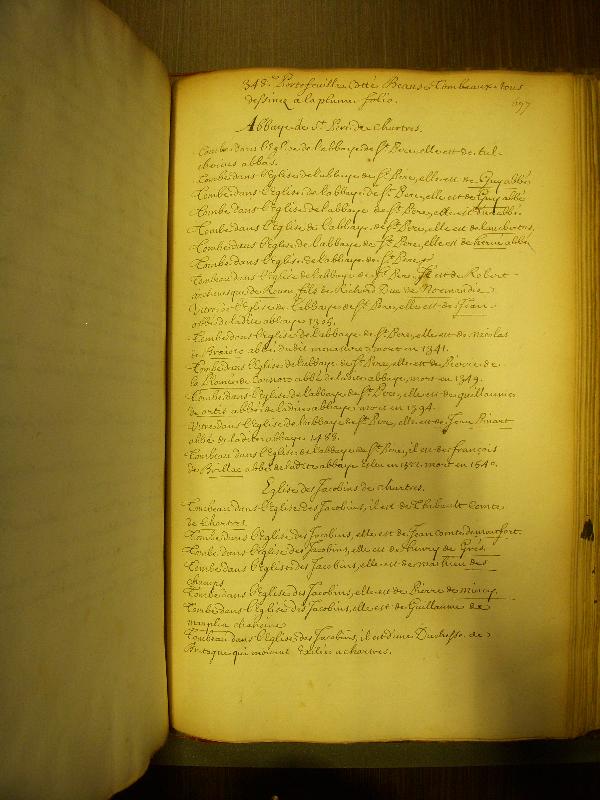 348.e Portefeuille Cotté Beauce Tombeaux tous
dessinez a la plume folio.
Abbaye de St. Pere de Chartres.
Tombe dans l'Eglise de l'abbaye de St. Pere, elle est de
abbas.
Tombe dans l'Eglise de l'abbaye de St. Pere, elle est de Guy abbé
Tombe dans l'Eglise de l'abbaye de St. Pere, elle est de Guy abbé
Tombe dans l'Eglise de l'abbaye de St. Pere, elle est abbé
Tombe dans l'Eglise de l'abbaye de St. Pere, elle est de
Tombe dans l'Eglise de l'abbaye de St. Pere, elle est de abbé
Tombe dans l'Eglise de l'abbaye de St. Pere
Tombeau dans l'Eglise de l'abbaye de St. Pere, Il est de Robert
archevesque de Rouen fils de Richard Duc de Normandie
Vitre de l'Eglise de l'abbaye de St. Pere, elle est de Jean
abbé de ladite abbaye 1305.
Tombe dans l'Eglise de l'abbaye de St. Pere, elle est de Nicolas
de abbé dudit monastere mort en 1341.
Tombe dans l'Eglise de l'abbaye de St. Pere, elle est de Pierre de
la abbé de ladite abbaye, mort en 1349.
Tombe dans l'Eglise de l'abbaye de St. Pere, elle est de guillaume
de abbé de ladite abbaye mort en 1394.
Vitre dans l'Eglise de l'abbaye de St. Pere, elle est de Jean Pinart
abbé de ladite abbaye 1488.
Tombeau dans l'Eglise de l'abbaye de St. Pere, il est de françois
de Brillac abbé de ladite abbaye Eslu en mort en 1540.
Eglise des Jacobins de chartres.
Tombeau dans l'Eglise des Jacobins, il est de Thibault Comte
de Chartres.
Tombe dans l'Eglise des Jacobins, elle est de Jean comte de montfort.
Tombe dans l'Eglise des Jacobins, elle est de
Tombe dans l'Eglise des Jacobins, elle est de mathieu des
champs
Tombe dans l'Eglise des Jacobins, elle est de Pierre de mincy.
Tombe dans l'Eglise des Jacobins, elle est de Guillaume de
Tombeau dans l'Eglise des Jacobins, il est d'une Duchesse de
Bretagne qui mourut Exilée a chartres.